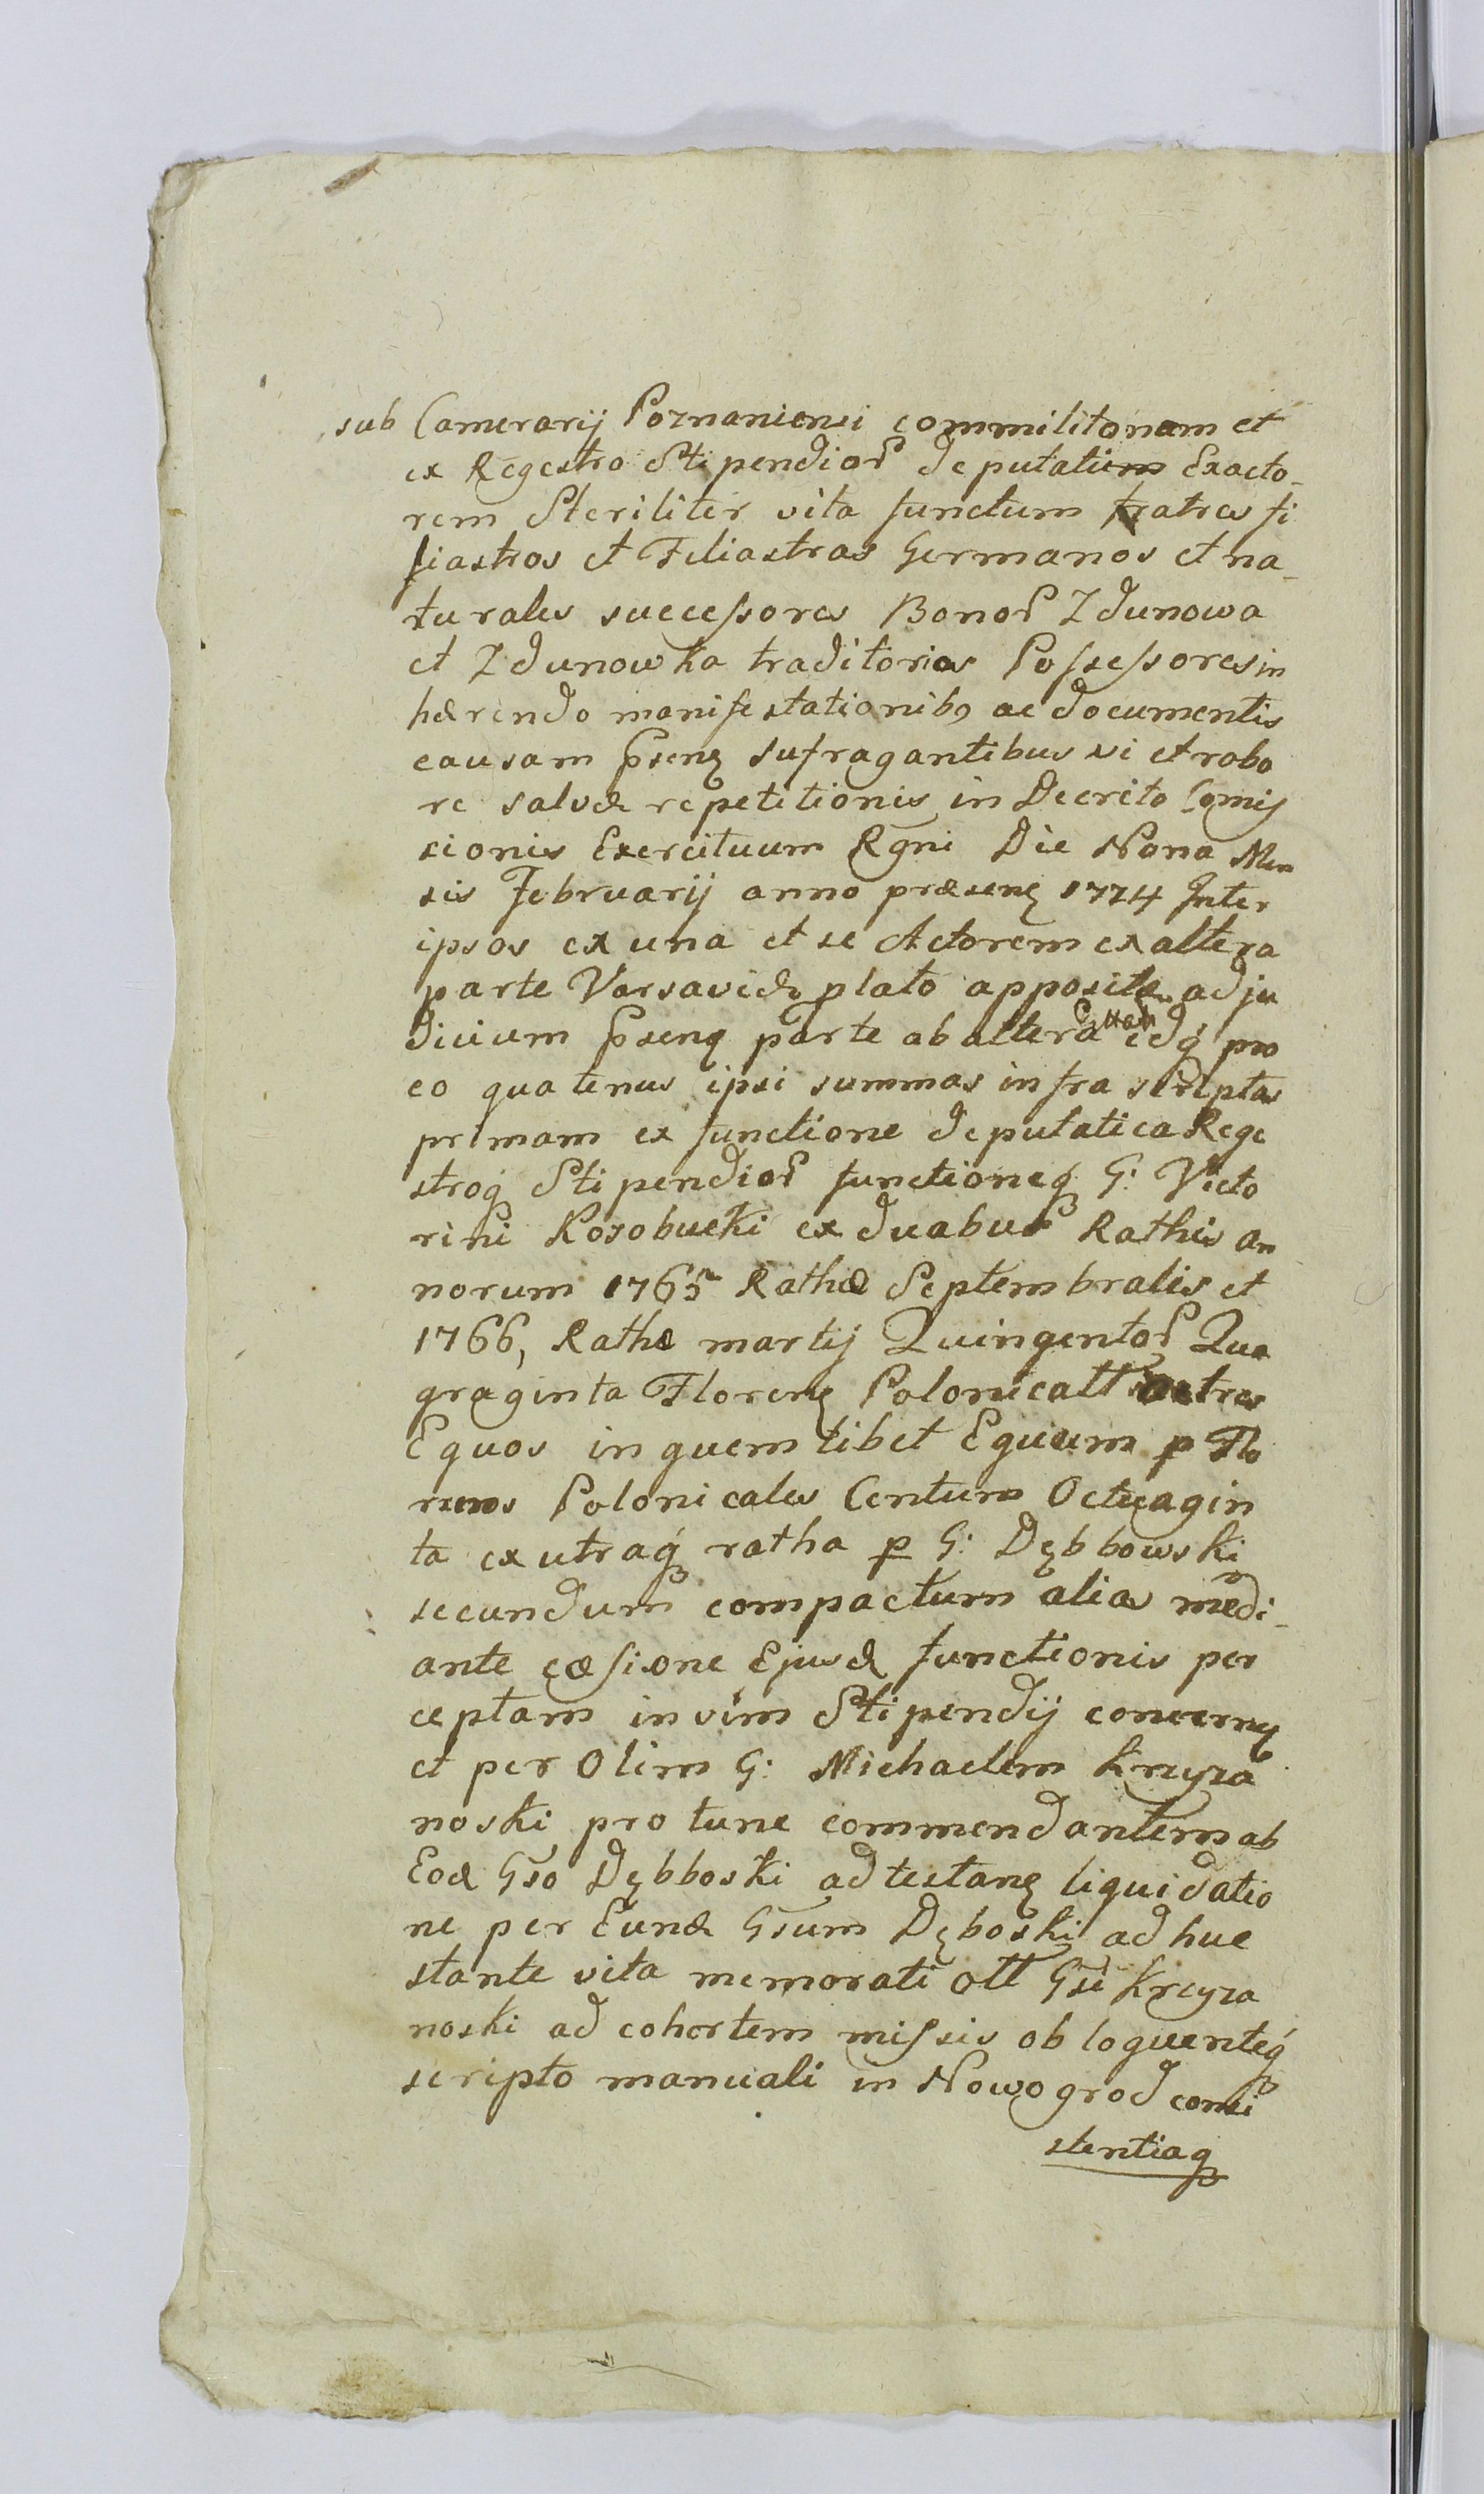 sub Camerarij Poznaniensi commilitonem et
ex Regestro Stipendior deputatum Exacto-
rem Steriliter vita functum fratres fi
liastros et Filiastras Germanos et na-
turales successores Bonor Zdunowa
et Zdunowka traditorios Possessores in
hærendo manifestationibꝰ ac documentis
causam pꝛsenꝫ sufragantibus vi et robo
re salvæ repetitionis in Decreto Comis
sionis Exercituum Rgni Die Nona Men
sis Februarij anno præsenꝫ 1774 Inter
ipsos ex una et se Actorem ex altera
parte Varsaviæ plato apposite adju
dicium pꝛsenꝫ parte ab altera idqꝫ pro
eo quatenus ipsi summas infra scriptas
primam ex functione deputatica Rege
stroqꝫ Stipendior functioneqꝫ G: Victo
rini Kosobucki ex duabus Rathis an
norum 1765 Rathæ Septembralis et
1766, Rathæ martij Quingentor Qua
graginta Florenꝫ Polonicall ac tres
Equos in quemlibet Equum p Flo
renos Polonicales Centum Octuagin
ta ex utraqꝫ ratha p G: Dębbowski
secundum compactum alias medi-
ante cæssione Ejusd functionis per
ceptam in vim Stipendij concernꝫ
et per Olim G: Michaelem Krzyza
noski pro tunc commendantem ab
Eod Gso Dębboski adtestanꝫ liquidatio
ne per Eund Gsum Dęboski adhuc
stante vita memorati oll Gsi Krzyza
noski ad cohortem missis obloquenteqꝫ
scripto manuali in Nowogrod consi
stentiaqꝫ